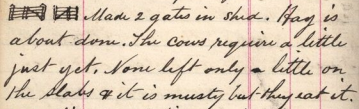 Made 2 gates in shed. Hay is
about done. The cows require a little
just yet. None left only a little on
the slabs & it is musty but they eat it